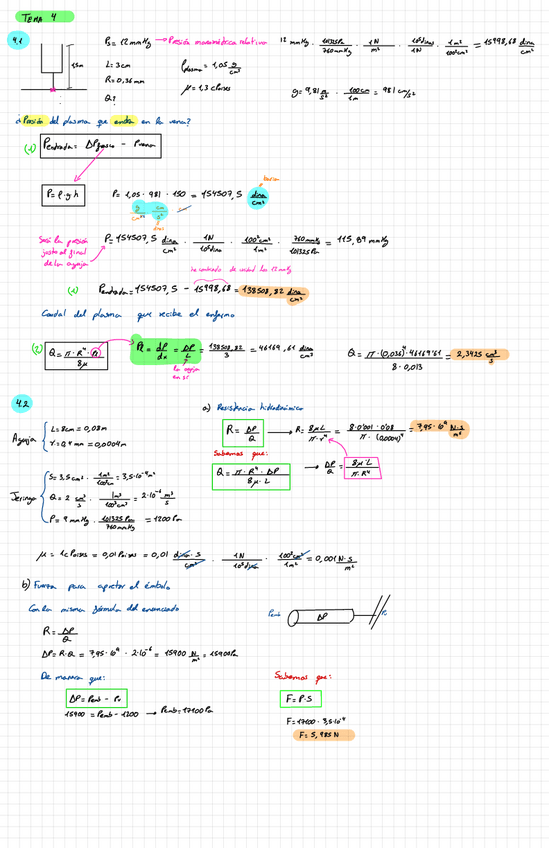 TEMA 4
4.1
P₀ = 12 mmHg → Presión manométrica relativa
12 mmHg · 101325 Pa / 760 mmHg · 1N / m² · 10⁵ dinas / 1N · 1m² / 100²cm² = 15998,68 dina / cm²
1,5m
L = 3cm
ρplasma = 1,05 g / cm³
R = 0,36 mm
μ = 1,3 cPoises
g = 9,81 m / s² · 100cm / 1m = 981 cm/s²
Q?
¿Presión del plasma que entra en la vena?
(1) Pentrada = ΔPfrasco - Pvena
P = ρ·g·h
P = 1,05 · 981 · 150 = 154507,5 dina / cm²
g / cm³ cm / s²
Será la presión justo al final de la aguja
P = 154507,5 dina / cm² · 1N / 10⁵dina · 100²cm² / 1m² · 760mmHg / 101325 Pa = 115,89 mmHg
(1) Pentrada = 154507,5 - 15998,68 = 138508,82 dina / cm²
Caudal del plasma que recibe el enfermo
(2) Q = π · R⁴ · Pl / 8μ
Pl = dP / dx = ΔP / L = 138508,82 / 3 = 46169,61 dina / cm³
Q = π · (0,036)⁴ · 46169'61 / 8 · 0,013 = 2,3425 cm³ / s
la aguja en sí
4.2
a) Resistencia hidrodinámica
Aguja
L = 8cm = 0,08m
r = 0,4 mm = 0,0004m
R = ΔP / Q → R = 8μL / π·r⁴ = 8·0'001·0'08 / π · (0,0004)⁴ = 7,95·10⁹ N·s / m⁵
Sabemos que:
Q = π · R⁴ · ΔP / 8μ·L → ΔP / Q = 8μ·L / π·R⁴
Jeringa
S = 3,5cm² · 1m² / 100²cm² = 3,5·10⁻⁴m²
Q = 2 cm³ / s · 1m³ / 100³cm³ = 2·10⁻⁶ m³ / s
P = 9 mmHg · 101325 Pa / 760mmHg = 1200 Pa
μ = 1c Poises = 0,01 Poises = 0,01 dina·s / cm² · 1N / 10⁵dina · 100²cm² / 1m² = 0,001 N·s / m²
b) Fuerza para apretar el émbolo
Con la misma fórmula del enunciado
Pemb ΔP Pv
R = ΔP / Q
ΔP = R·Q = 7,95·10⁹ · 2·10⁻⁶ = 15900 N / m² = 15900Pa
De manera que:
Sabemos que:
ΔP = Pemb - Pv
F = P·S
15900 = Pemb - 1200 → Pemb = 17100 Pa
F = 17100 · 3,5·10⁻⁴
F = 5,985 N